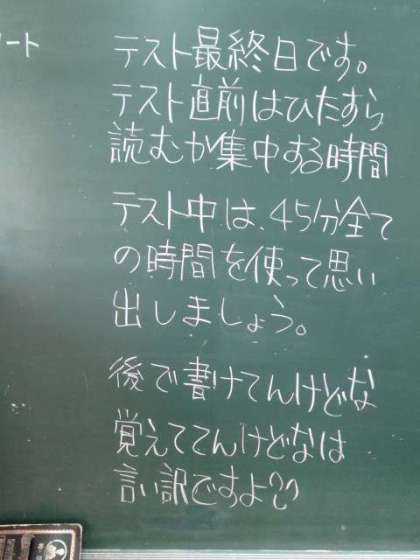 ート
テスト最終日です。
テスト直前はひたすら
読むか集中する時間
テスト中は、45分全て
の時間を使って思い
出しましょう。
後で書けてんけどな
覚えててんけどなは
言い訳ですよ